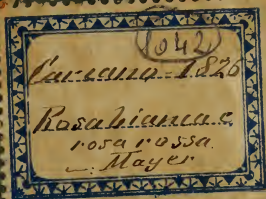 1042
Cariano 1826
Rosa bianca e
rosa rossa.
Mayer